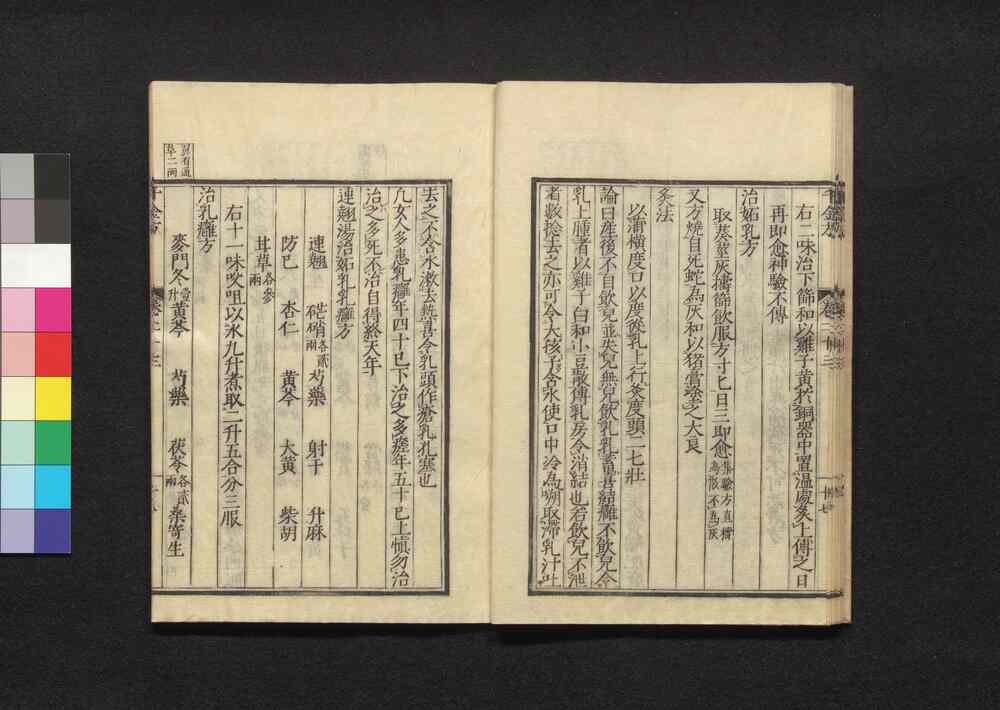 右二味治下篩和以雞子黃於銅器中置溫處炙上傅之日
再即愈神驗不傳
治妬乳方
取葵莖灰擣篩飲服方寸匕日三即愈集驗方直擣為散不為灰
又方燒自死蛇為灰和以猪膏塗之大良
灸法
以蒲橫度口以度從乳上行灸度頭二七壯
論曰產後不自飲兒並失兒無兒飲乳乳蓄喜結癰不飲兒令
乳上腫者以雞子白和小豆散傅乳房令消結也若飲兒不泄
者數捻去之亦可令大孩子含水使口中冷為嗍取滯乳汁吐
去之不含水漱去熱喜令乳頭作瘡乳孔塞也
凡女人多患乳癰年四十已下治之多瘥年五十已上愼勿治
治之多死不治自得終天年
連翹湯治妬乳乳癰方
連翹 芒硝各貳兩 芍藥 射干 升麻
防已 杏仁 黃芩 大黃 柴胡
甘草各參兩
右十一味㕮咀以水九升煮取二升五合分三服
治乳癰方
麥門冬壹升 黃芩 芍藥 茯苓各貳兩 桑寄生
千金方
千金方